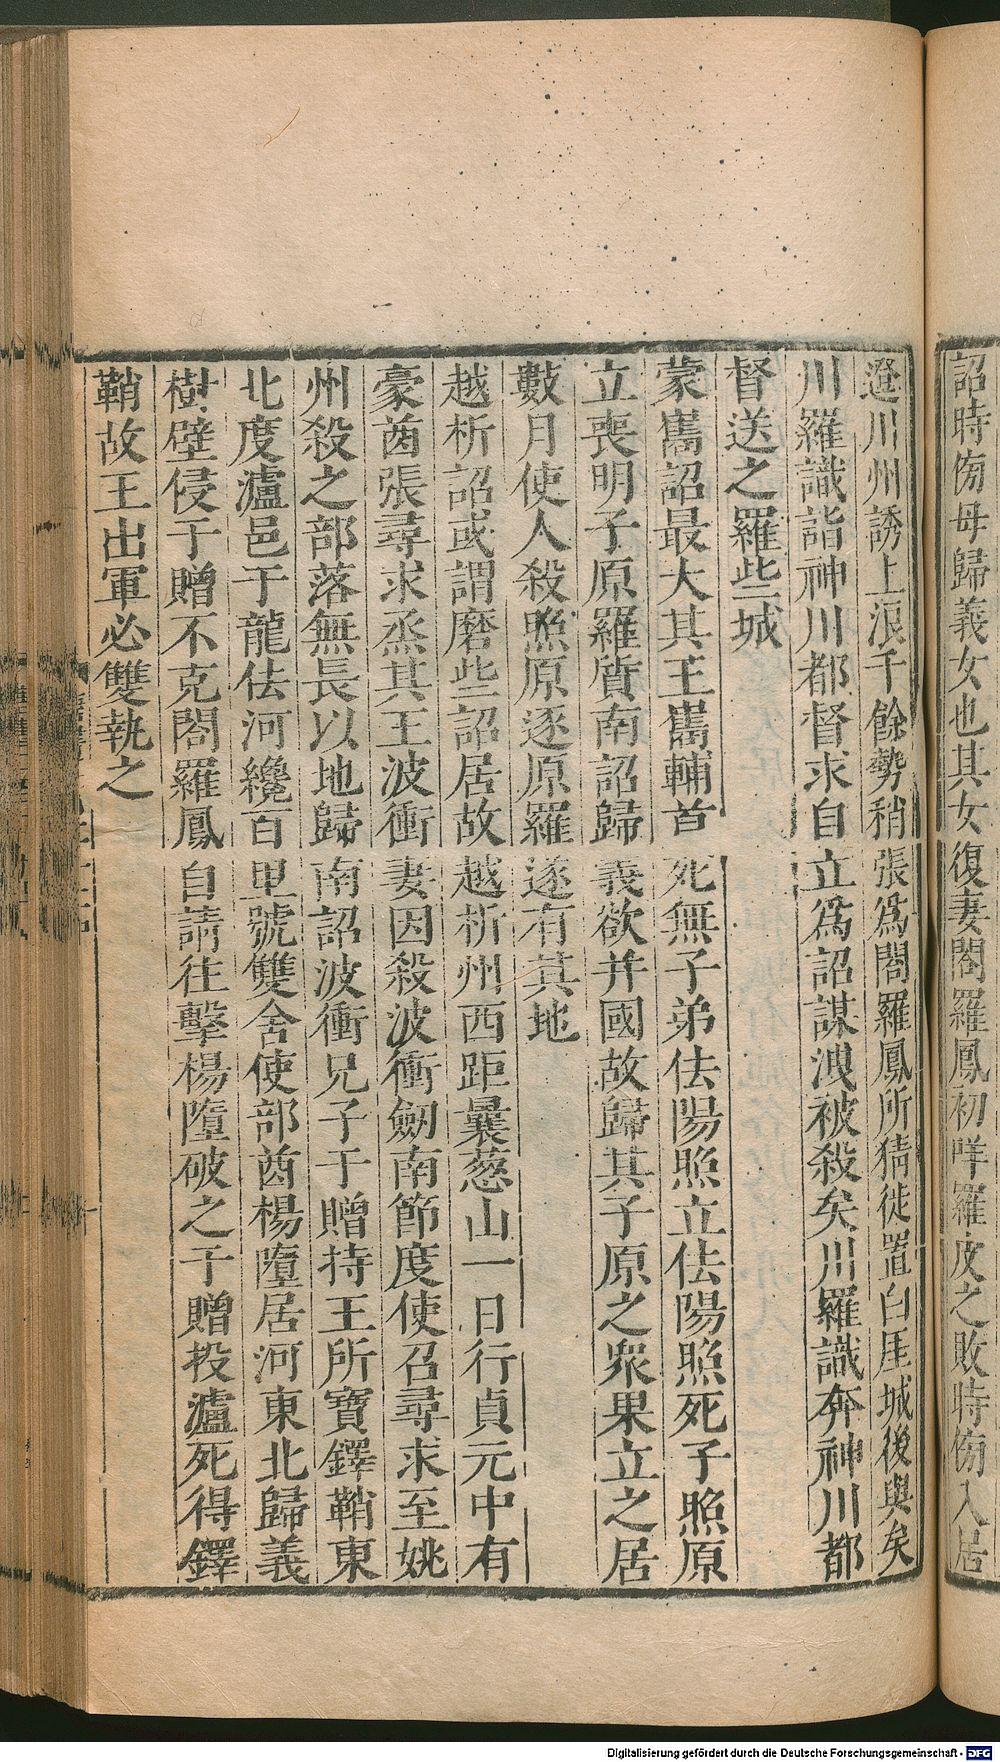 詔時傍母歸義女也其女復妻閤羅鳳初咩羅皮之敗時傍入居
邆川州誘上浪千餘勢稍張爲閤羅鳳所猜徙置白厓城後與矣
川羅識詣神川都督求自立爲詔謀洩被殺矣川羅識奔神川都
督送之羅些城
蒙嶲詔最大其王嶲輔首死無子弟佉陽照立佉陽照死子照原
立喪明子原羅質南詔歸義欲并國故歸其子原之衆果立之居
數月使人殺照原逐原羅遂有其地
越析詔或謂磨些詔居故越析州西距曩葱山一日行貞元中有
豪酋張尋求烝其王波衝妻因殺波衝劒南節度使召尋求至姚
州殺之部落無長以地歸南詔波衝兄子于贈持王所寶鐸鞘東
北度瀘邑于龍佉河纔百里號雙舍使部酋楊墮居河東北歸義
樹壁侵于贈不克閤羅鳳自請往擊楊墮破之于贈投瀘死得鐸
鞘故王出軍必雙執之
Digitalisierung gefördert durch die Deutsche Forschungsgemeinschaft - DFG